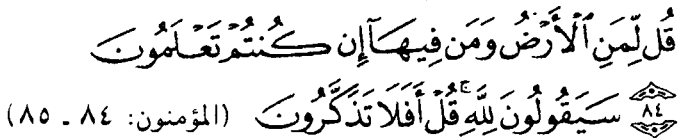 قُل لِّمَنِ ٱلْأَرْضُ وَمَن فِيهَآ إِن كُنتُمْ تَعْلَمُونَ
٨٤ سَيَقُولُونَ لِلَّهِ ۚ قُلْ أَفَلَا تَذَكَّرُونَ (المؤمنون: ٨٤ ـ ٨٥)